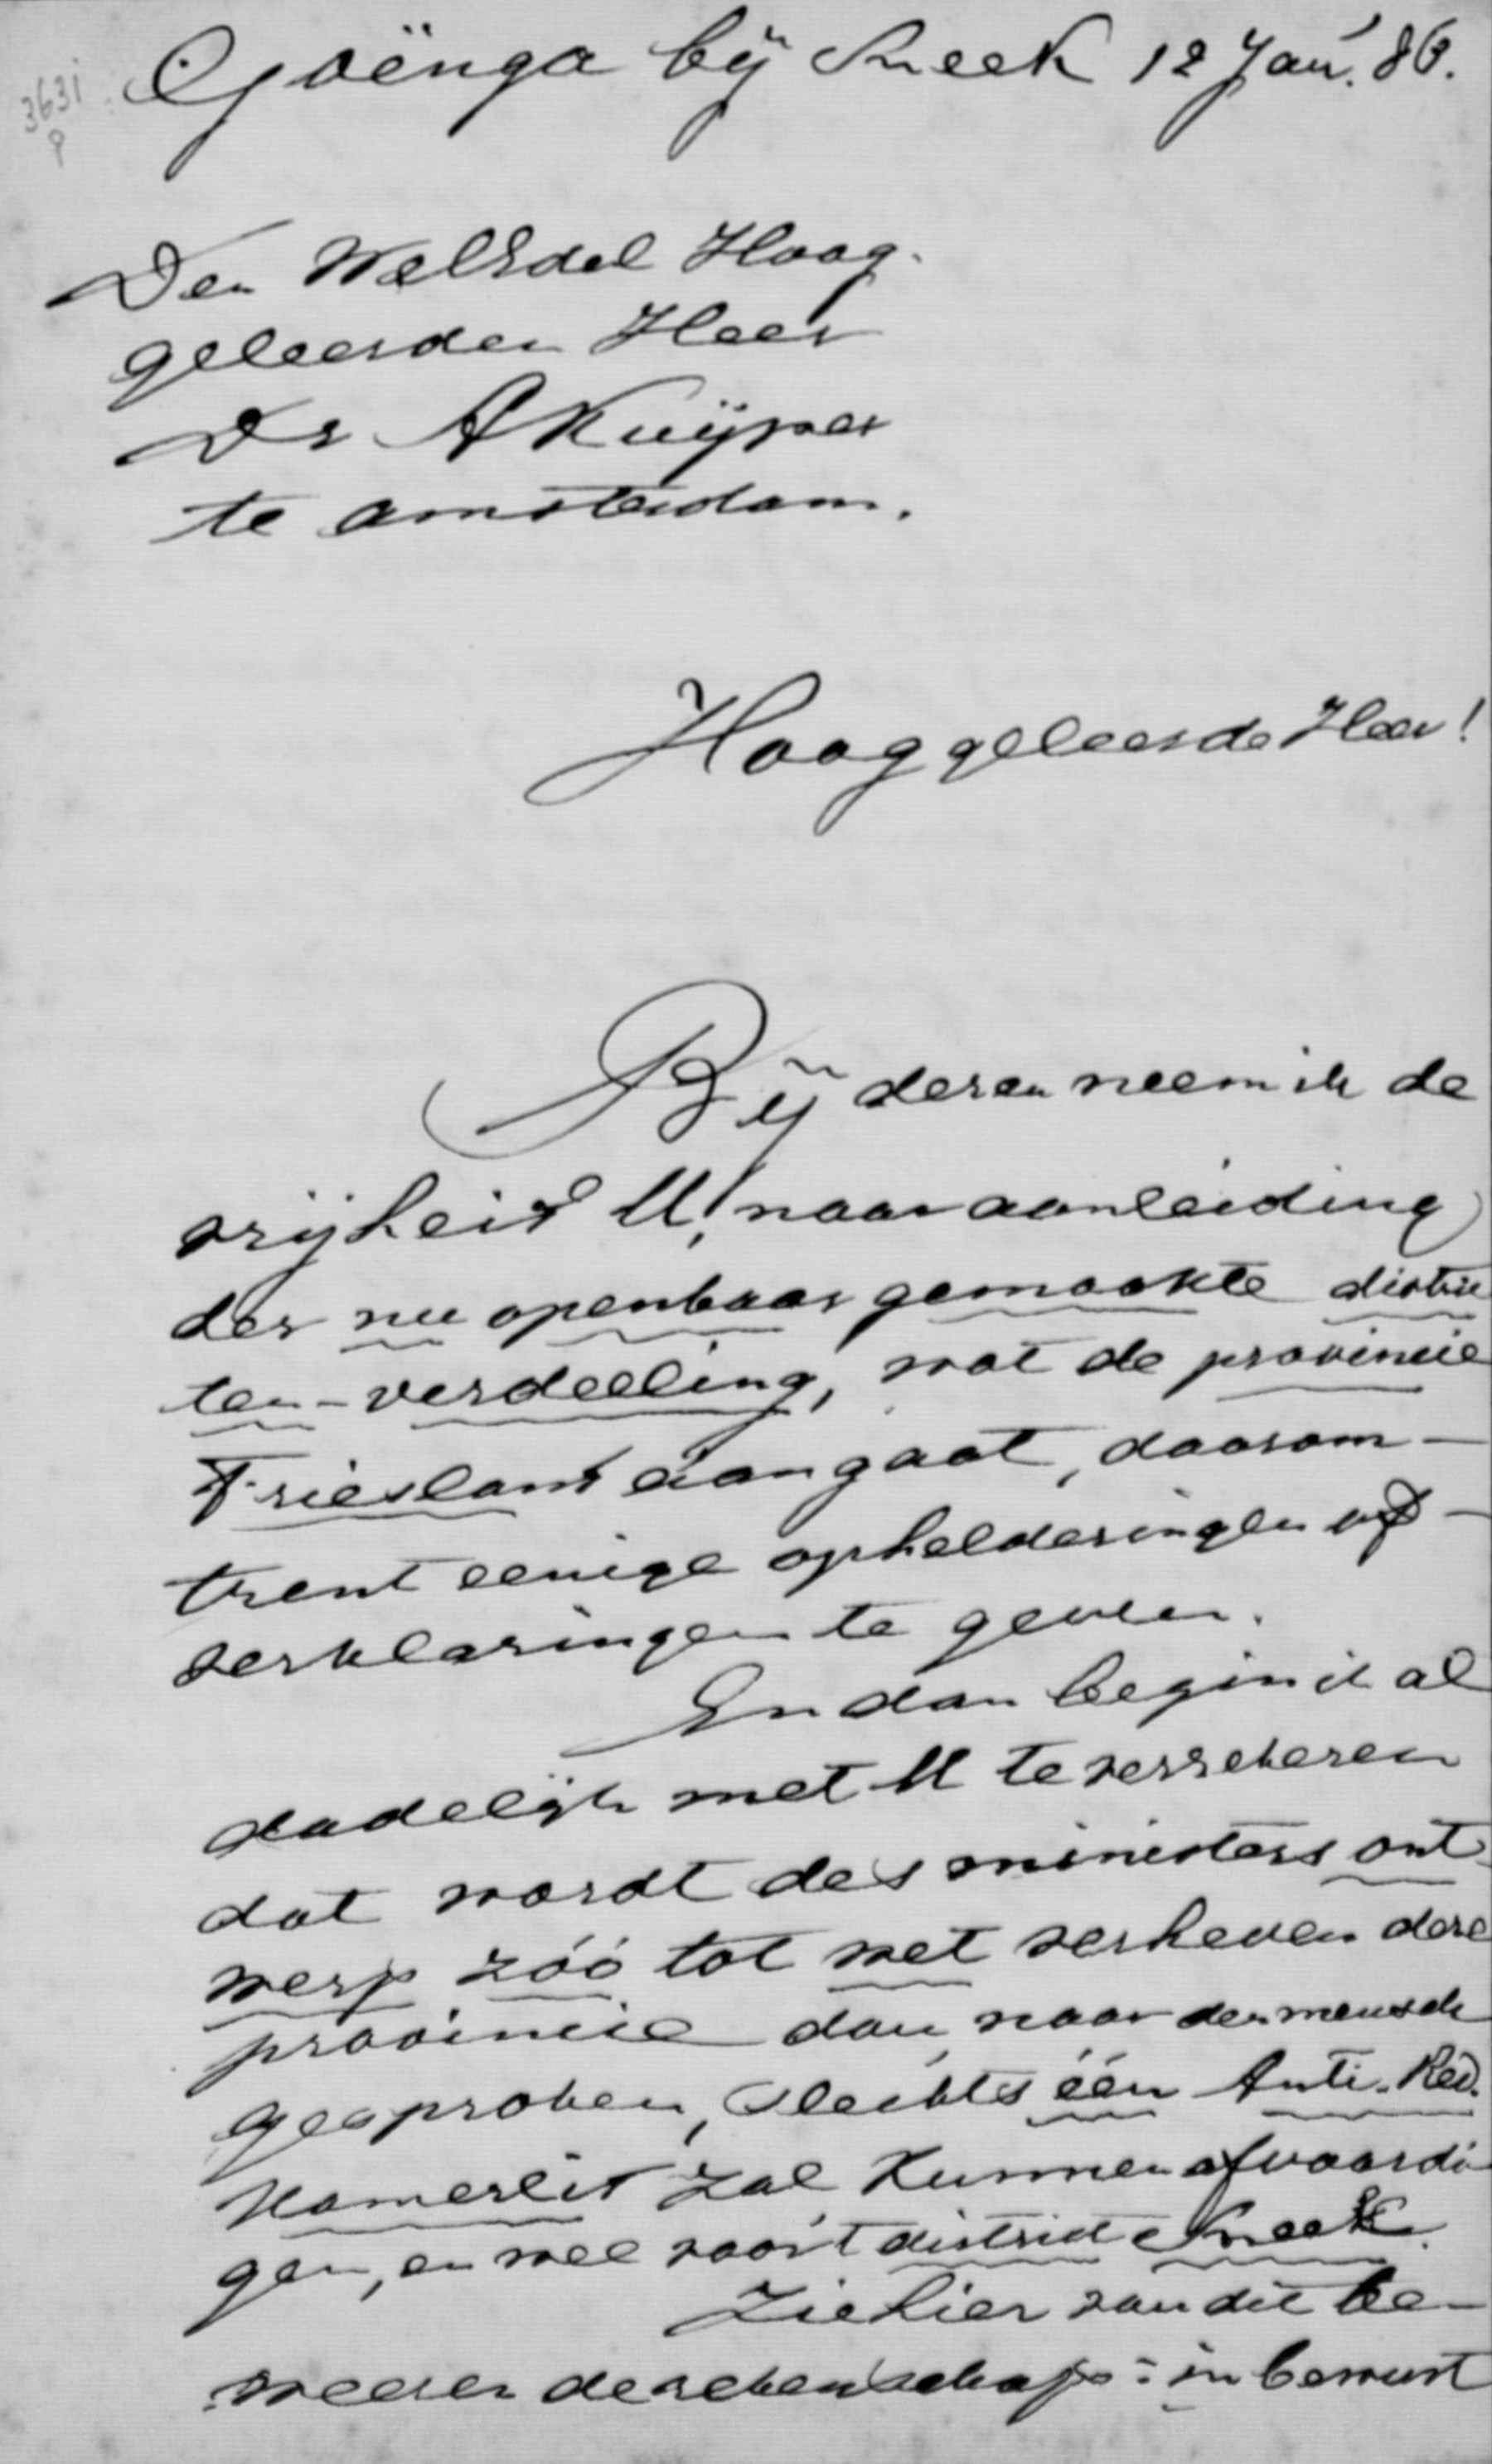 3631
P
Goënga bij Sneek 12 Jan. 86.
Den WelEdel Hoog-
geleerden Heer
Dr A Kuijper
te Amsterdam.
Hooggeleerde Heer!
Bij dezen neem ik de
vrijheid U, naar aanleiding
der nu openbaar gemaakte distric
ten-verdeeling, wat de provincie
Friesland aangaat, daarom-
trent eenige ophelderingen of-
verklaringen te geven.
En dan begin ik al
dadelijk met U te verzekeren
dat wordt des ministers ont-
werp zóó tot wet verheven deze
provincie dan, naar den mensch
gesproken, slechts één Anti-Rev.
Kamerlid zal kunnen afvaardi-
gen, en wel voor 't district Sneek.
Ziehier van dit be-
weeren de rekenschap: in bewust